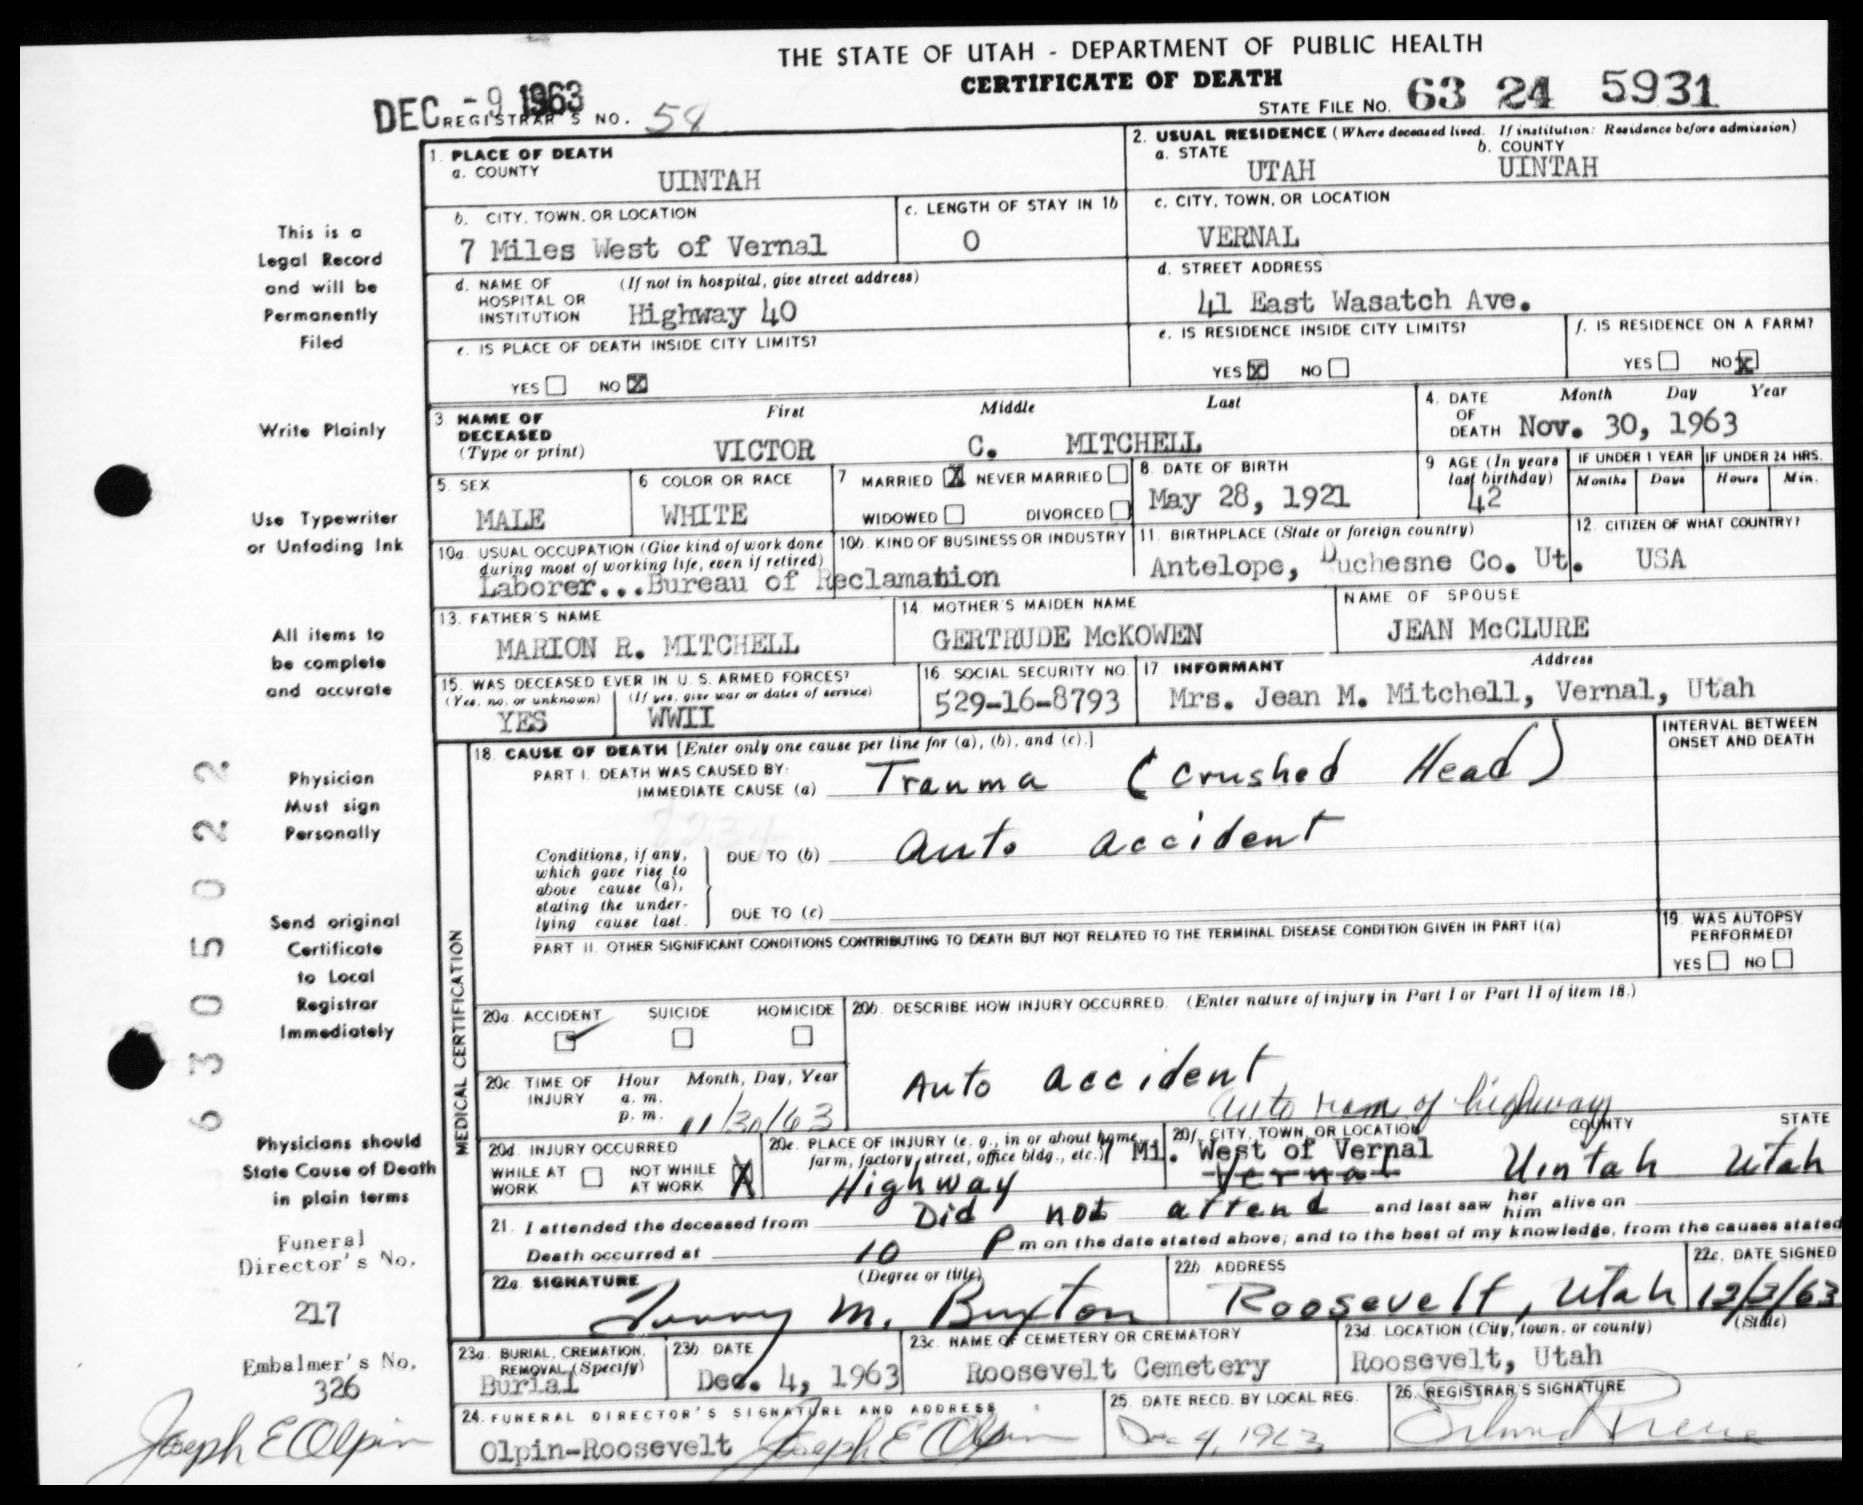 THE STATE OF UTAH - DEPARTMENT OF PUBLIC HEALTH
CERTIFICATE OF DEATH
DEC -9 1963
REGISTRAR'S NO. 58
STATE FILE NO. 63 24 5931
1. PLACE OF DEATH
a. COUNTY
UINTAH
2. USUAL RESIDENCE (Where deceased lived. If institution: Residence before admission)
a. STATE
UTAH
b. COUNTY
UINTAH
b. CITY, TOWN, OR LOCATION
7 Miles West of Vernal
c. LENGTH OF STAY IN 1b
0
c. CITY, TOWN, OR LOCATION
VERNAL
d. NAME OF HOSPITAL OR INSTITUTION
(If not in hospital, give street address)
Highway 40
d. STREET ADDRESS
41 East Wasatch Ave.
e. IS PLACE OF DEATH INSIDE CITY LIMITS?
YES NO X
e. IS RESIDENCE INSIDE CITY LIMITS?
YES X NO
f. IS RESIDENCE ON A FARM?
YES NO X
3. NAME OF DECEASED
(Type or print)
First Middle Last
VICTOR C. MITCHELL
4. DATE OF DEATH
Month Day Year
Nov. 30, 1963
5. SEX
MALE
6 COLOR OR RACE
WHITE
7 MARRIED X NEVER MARRIED
WIDOWED DIVORCED
8. DATE OF BIRTH
May 28, 1921
9 AGE (In years last birthday)
42
IF UNDER 1 YEAR
Months Days
IF UNDER 24 HRS.
Hours Min.
10a. USUAL OCCUPATION (Give kind of work done during most of working life, even if retired)
10b. KIND OF BUSINESS OR INDUSTRY
Laborer...Bureau of Reclamation
11. BIRTHPLACE (State or foreign country)
Antelope, Duchesne Co. Ut.
12. CITIZEN OF WHAT COUNTRY?
USA
13. FATHER'S NAME
MARION R. MITCHELL
14. MOTHER'S MAIDEN NAME
GERTRUDE McKOWEN
NAME OF SPOUSE
JEAN McCLURE
15. WAS DECEASED EVER IN U. S. ARMED FORCES?
(Yes, no, or unknown) (If yes, give war or dates of service)
YES WWII
16. SOCIAL SECURITY NO.
529-16-8793
17. INFORMANT Address
Mrs. Jean M. Mitchell, Vernal, Utah
MEDICAL CERTIFICATION
18. CAUSE OF DEATH [Enter only one cause per line for (a), (b), and (c).]
INTERVAL BETWEEN ONSET AND DEATH
PART I. DEATH WAS CAUSED BY:
IMMEDIATE CAUSE (a) Trauma (Crushed Head)
Conditions, if any, which gave rise to above cause (a), stating the underlying cause last.
DUE TO (b) Auto accident
DUE TO (c)
PART II. OTHER SIGNIFICANT CONDITIONS CONTRIBUTING TO DEATH BUT NOT RELATED TO THE TERMINAL DISEASE CONDITION GIVEN IN PART I(a)
19. WAS AUTOPSY PERFORMED?
YES NO
20a. ACCIDENT SUICIDE HOMICIDE
20b. DESCRIBE HOW INJURY OCCURRED. (Enter nature of injury in Part I or Part II of item 18.)
Auto accident
Auto ran of highway
20c. TIME OF INJURY
Hour Month, Day, Year
a. m.
p. m. 11/30/63
20d. INJURY OCCURRED
WHILE AT WORK NOT WHILE AT WORK X
20e. PLACE OF INJURY (e. g., in or about home, farm, factory, street, office bldg., etc.)
Highway
20f. CITY, TOWN, OR LOCATION COUNTY STATE
7 Mi. West of Vernal
Vernal Uintah Utah
21. I attended the deceased from Did not attend and last saw her him alive on
Death occurred at 10 P m on the date stated above; and to the best of my knowledge, from the causes stated
22a. SIGNATURE (Degree or title)
M. Buxton
22b. ADDRESS
Roosevelt, Utah
22c. DATE SIGNED
12/3/63
23a. BURIAL, CREMATION, REMOVAL (Specify)
Burial
23b. DATE
Dec. 4, 1963
23c. NAME OF CEMETERY OR CREMATORY
Roosevelt Cemetery
23d. LOCATION (City, town, or county) (State)
Roosevelt, Utah
24. FUNERAL DIRECTOR'S SIGNATURE AND ADDRESS
Olpin-Roosevelt Joseph E Olpin
25. DATE RECD. BY LOCAL REG.
Dec 4, 1963
26. REGISTRAR'S SIGNATURE
This is a
Legal Record
and will be
Permanently
Filed
Write Plainly
Use Typewriter
or Unfading Ink
All items to
be complete
and accurate
Physician
Must sign
Personally
Send original
Certificate
to Local
Registrar
Immediately
Physicians should
State Cause of Death
in plain terms
Funeral
Director's No.
217
Embalmer's No.
326
Joseph E Olpin
6305022